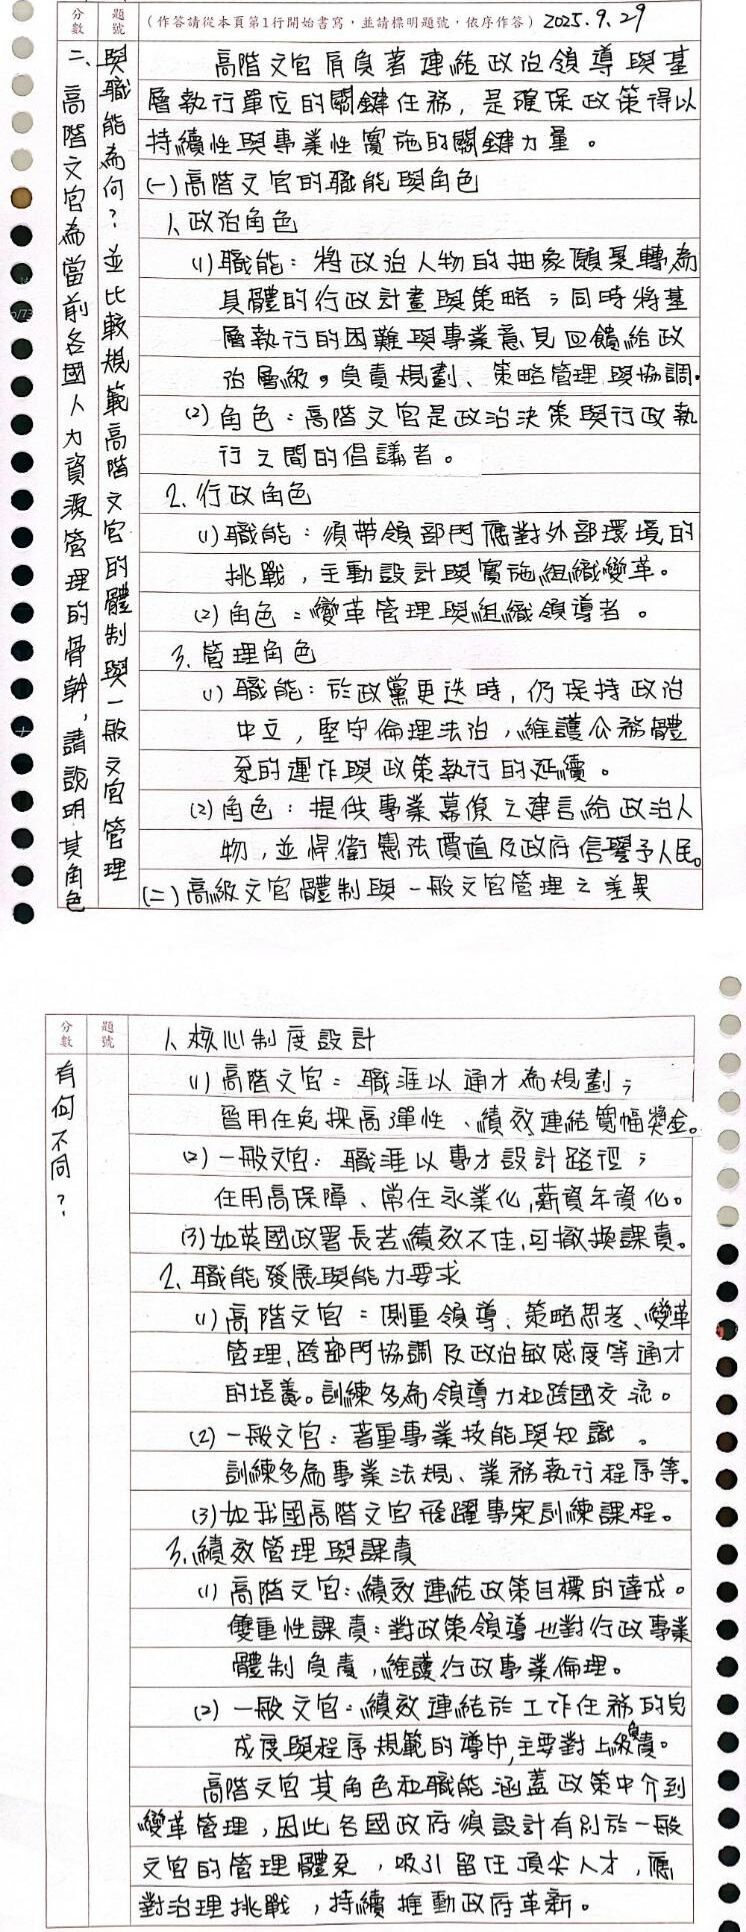 分數
題號
(作答請從本頁第1行開始書寫，並請標明題號，依序作答) 2025.9.29
二、高階文官為當前各國人力資源管理的骨幹，請說明其角色
與職能為何？並比較規範高階文官的體制與一般文官管理
高階文官肩負著連結政治領導與基
層執行單位的關鍵任務，是確保政策得以
持續性與專業性實施的關鍵力量。
(一)高階文官的職能與角色
1、政治角色
(1)職能：將政治人物的抽象願景轉為
具體的行政計畫與策略；同時將基
層執行的困難與專業意見回饋給政
治層級。負責規劃、策略管理與協調。
(2)角色：高階文官是政治決策與行政執
行之間的倡議者。
2、行政角色
(1)職能：須帶領部門應對外部環境的
挑戰，主動設計與實施組織變革。
(2)角色：變革管理與組織領導者。
3、管理角色
(1)職能：於政黨更迭時，仍保持政治
中立，堅守倫理法治，維護公務體
系的運作與政策執行的延續。
(2)角色：提供專業幕僚之建言給政治人
物，並悍衛憲法價值及政府信譽予人民。
(二)高級文官體制與一般文官管理之差異
分數
題號
有何不同？
1、核心制度設計
(1)高階文官：職涯以通才為規劃；
晉用任免採高彈性、績效連結寬幅獎金。
(2)一般文官：職涯以專才設計路徑；
任用高保障、常任永業化，薪資年資化。
(3)如英國政署長若績效不佳，可撤換課責。
2、職能發展與能力要求
(1)高階文官：側重領導、策略思考、變革
管理、跨部門協調及政治敏感度等通才
的培養。訓練多為領導力和跨國交流。
(2)一般文官：著重專業技能與知識。
訓練多為專業法規、業務執行程序等。
(3)如我國高階文官飛躍專案訓練課程。
3、績效管理與課責
(1)高階文官：績效連結政策目標的達成。
雙重性課責：對政策領導也對行政專業
體制負責，維護行政專業倫理。
(2)一般文官：績效連結於工作任務的完
成度與程序規範的遵守，主要對上級負責。
高階文官其角色和職能涵蓋政策中介到
變革管理，因此各國政府須設計有別於一般
文官的管理體系，吸引留任頂尖人才，應
對治理挑戰，持續推動政府革新。